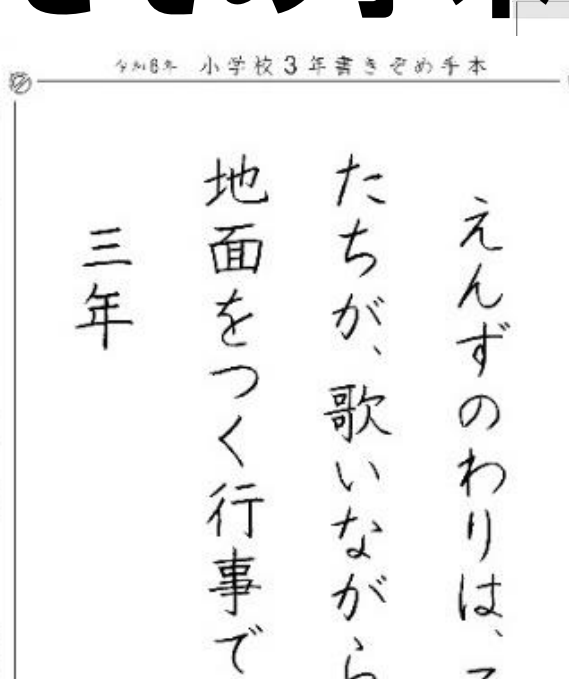 きぞめ手本
令和6年 小学校3年書きぞめ手本
えんずのわりは、
たちが、歌いながら
地面をつく行事で
三年